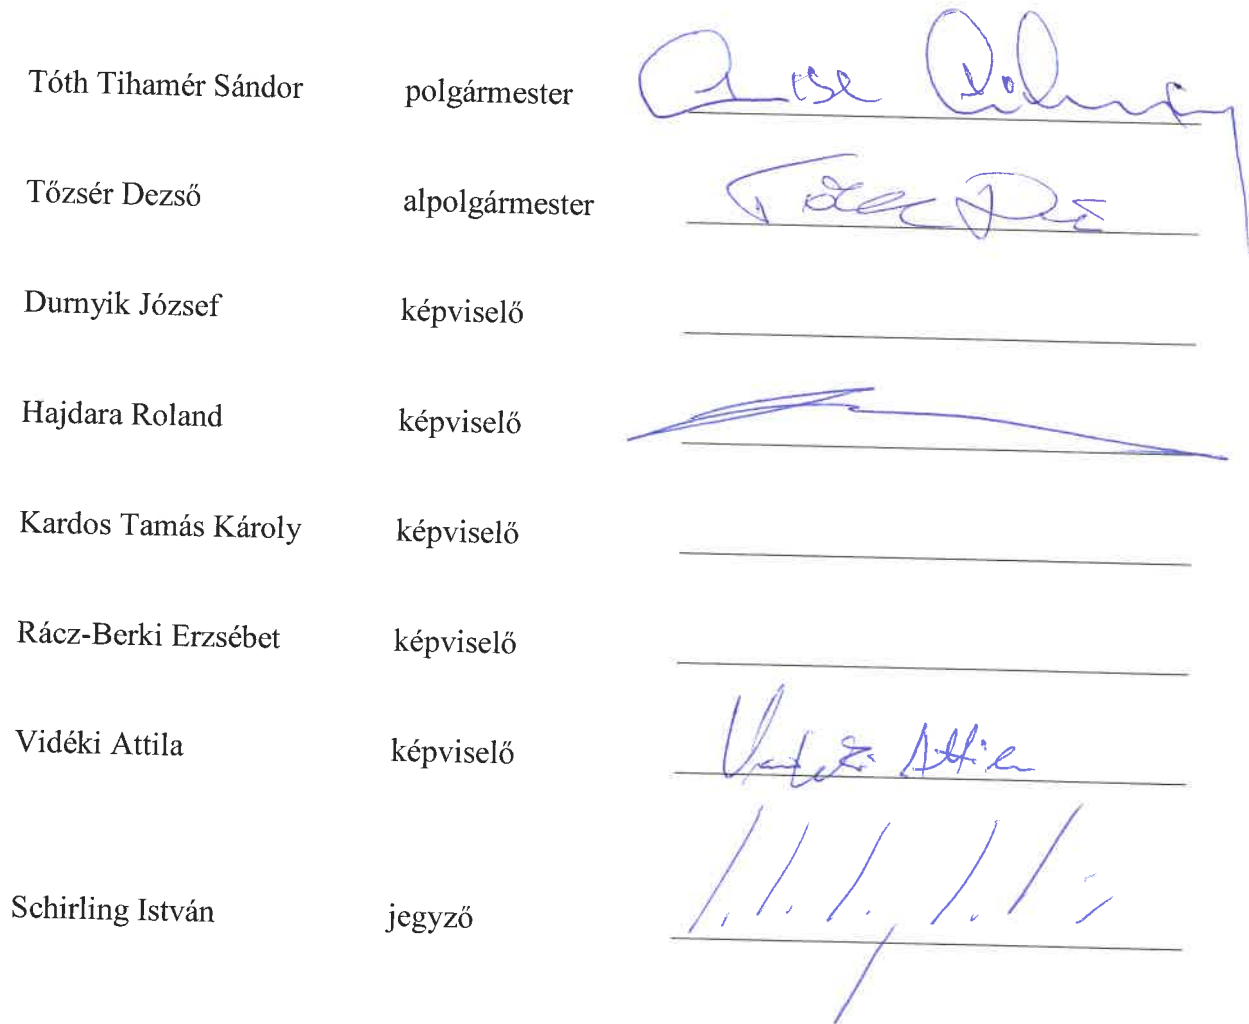 Tóth Tihamér Sándor polgármester
Tőzsér Dezső alpolgármester
Durnyik József képviselő
Hajdara Roland képviselő
Kardos Tamás Károly képviselő
Rácz-Berki Erzsébet képviselő
Vidéki Attila képviselő Vidéki Attila
Schirling István jegyző